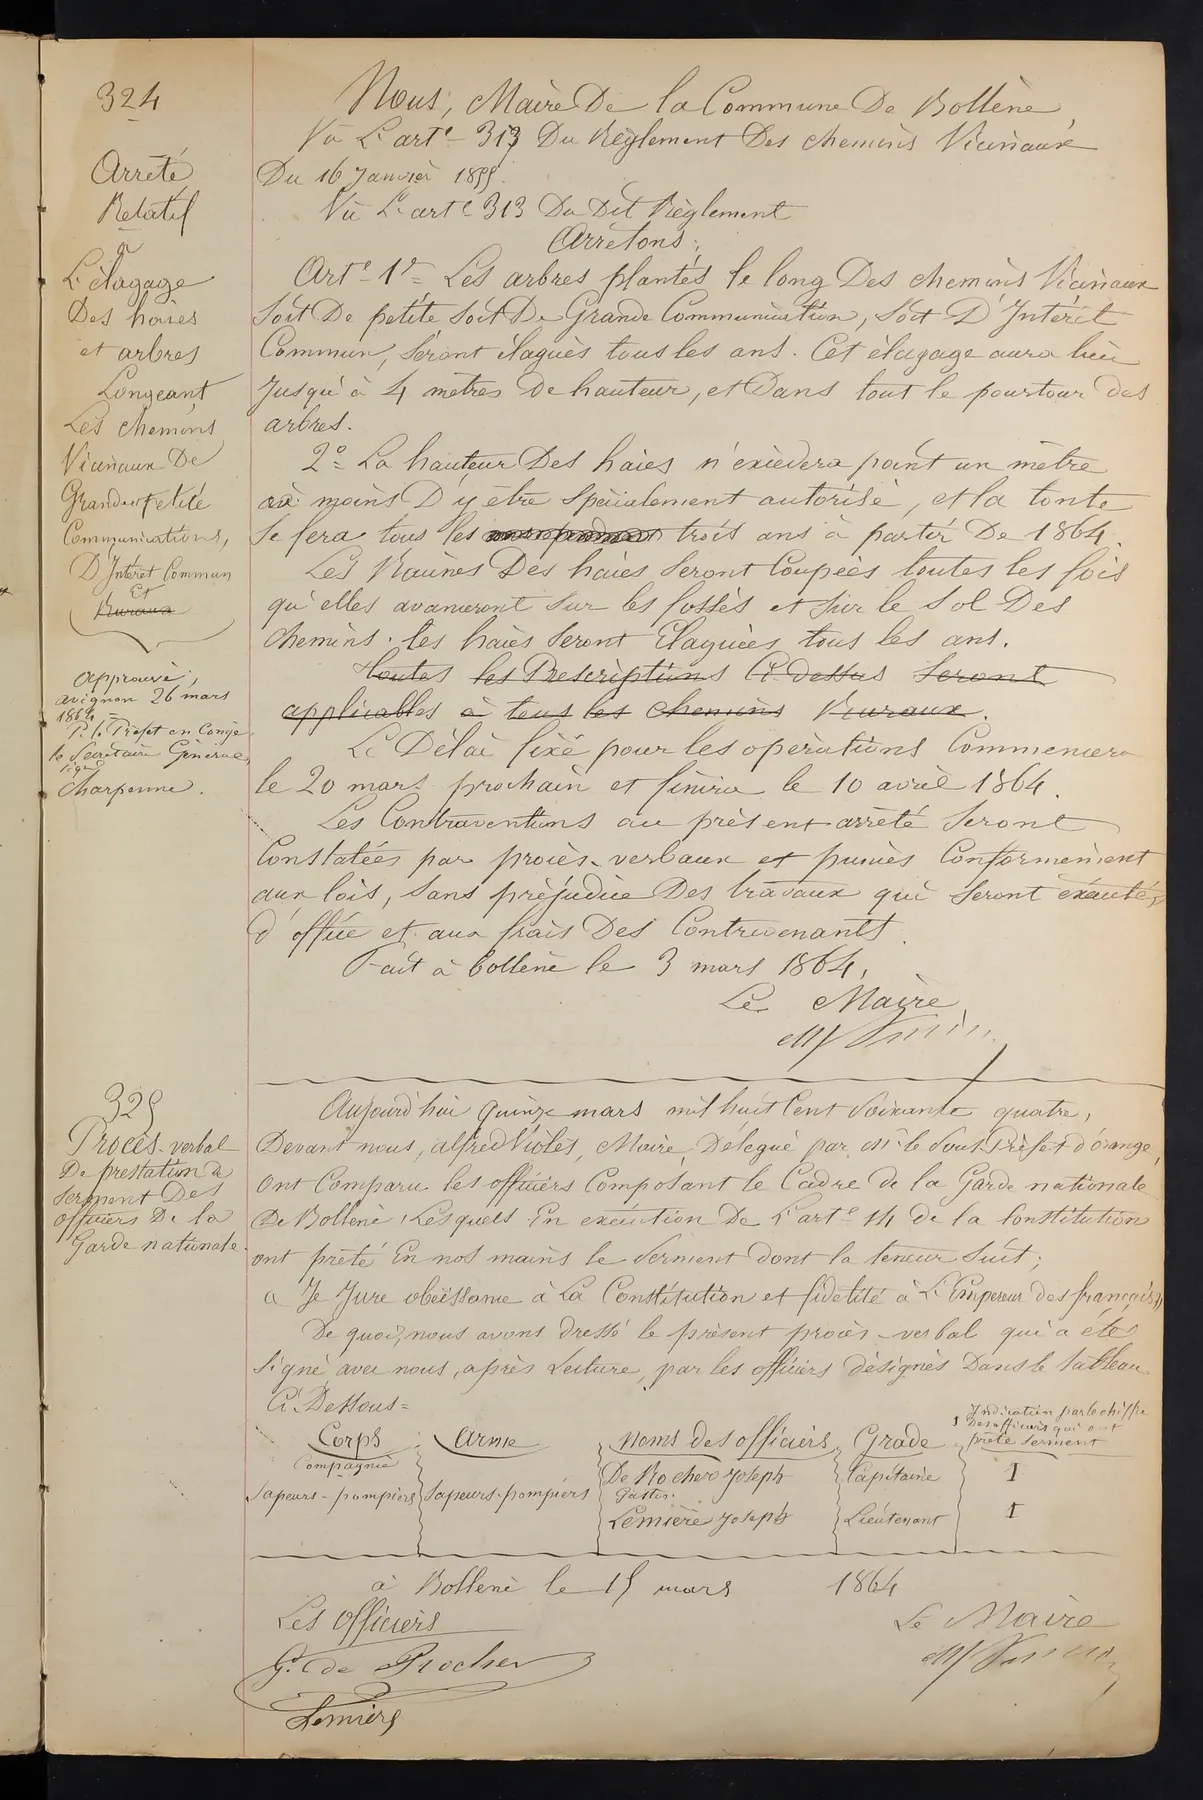 324
Arrêté
Relatif
a
L'élagage
Des haies
et arbres
Longeant
Les chemins
Vicinaux De
Grande et petite
Communications,
D'Intéret Commun
et
Ruraux
approuvé,
avignon 26 mars
1864
P. le Préfet en Congé
le Secrétaire Général
signé
Charpenne.
Nous, Maire De la Commune De Bollène,
Vu L'arte 317 Du Règlement Des chemins Vicinaux
Du 16 Janvier 1855.
Vu L'arte 313 Du Dit Règlement
Arrêtons;
Arte 1r = Les arbres plantés le long Des chemins Vicinaux
Soit De petite Soit De Grande Communication, Soit D'Intérêt
Commun, Seront élagués tous les ans. Cet élagage aura lieu
Jusqu'à 4 mètres De hauteur, et Dans tout le pourtour des
arbres.
2o = La hauteur Des haies n'exèdera point un mètre
à moins D'y être Spécialement autorisé, et la tonte
Se fera tous les trois ans à partir De 1864.
Les Racines Des haies Seront Coupées toutes les fois
qu'elles avanceront Sur les fossés et Sur le Sol Des
Chemins. les haies Seront Elaguées tous les ans.
toutes les Prescriptions Ci-Dessus Seront
applicables à tous les Chemins Ruraux.
Le Délai fixé pour les opérations Commencera
le 20 mars prochain et finira le 10 avril 1864.
Les Contraventions au présent arrêté Seront
Constatées par procès-verbaux et punies Conformément
aux lois, Sans préjudice Des travaux qui Seront exécutés
d'office et aux frais Des Contrevenants.
Fait à bollène le 3 mars 1864,
Le Maire
329
Procès-verbal
De prestation de
Serment Des
officiers De la
Garde nationale
Aujourd'hui quinze mars mil huit Cent Soixante quatre,
Devant nous, alfred Violès, Maire, Délégué par Mr le Sous Préfet d'orange,
Ont Comparu les officiers Composant le Cadre de la Garde nationale
De Bollène, Lesquels En exécution De L'arte 14 de la Constitution
ont prêté En nos mains le Serment dont la teneur Suit;
« Je Jure obéissance à La Constitution et fidélité à L'Empereur des français »
De quoi, nous avons dressé le présent procès-verbal qui a été
Signé avec nous, après Lecture, par les officiers désignés Dans le tableau
Ci-Dessous =
Corps Arme Noms des officiers Grade Indication par le chiffre
1 Des officiers qui ont
prêté Serment
Compagnie
Sapeurs-pompiers Sapeurs-pompiers De Rocher Joseph Capitaine 1
Gaston.
Lemière Joseph Lieutenant 1
à Bollène le 15 mars 1864
Les Officiers Le Maire
G. de Rocher
Lemière